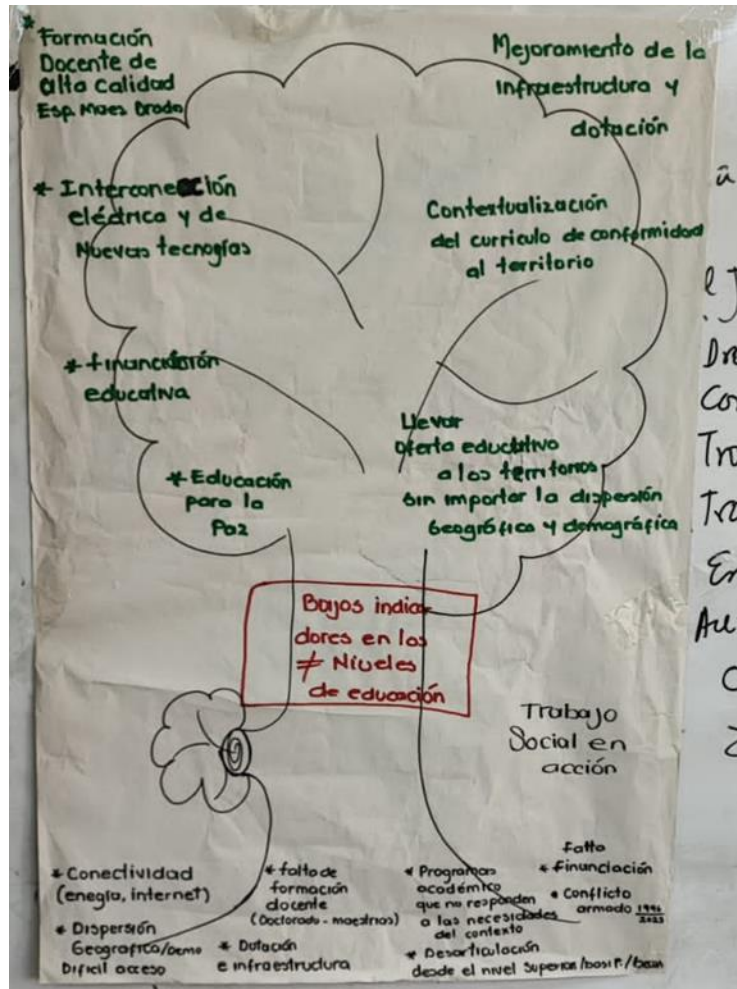 * Formación
Docente de
alta Calidad
Esp. Maes
Mejoramiento de la
Infraestructura y
dotación
* Interconección
eléctrica y de
Nuevas tecnogías
Contextualización
del curriculo de conformidad
al territorio
* financiación
educativa
Llevar
Oferta educativo
a los territorios
sin importar la dispersión
Geográfica y demográfica
* Educación
para la
Paz
Bajos indica-
dores en los
≠ Niveles
de educación
Trabajo
Social en
acción
* Conectividad
(enegía, internet)
* Dispersión
Geografica/Demo
Dificil acceso
* falta de
formación
docente
(Doctorado - maestrias)
* Dotación
e infraestructura
* Programas
académico
que no responden
a las necesidades
del contexto
* Desarticulación
desde el nivel Superior/
Falta
* Financiación
* Conflicto
armado 1996
2023